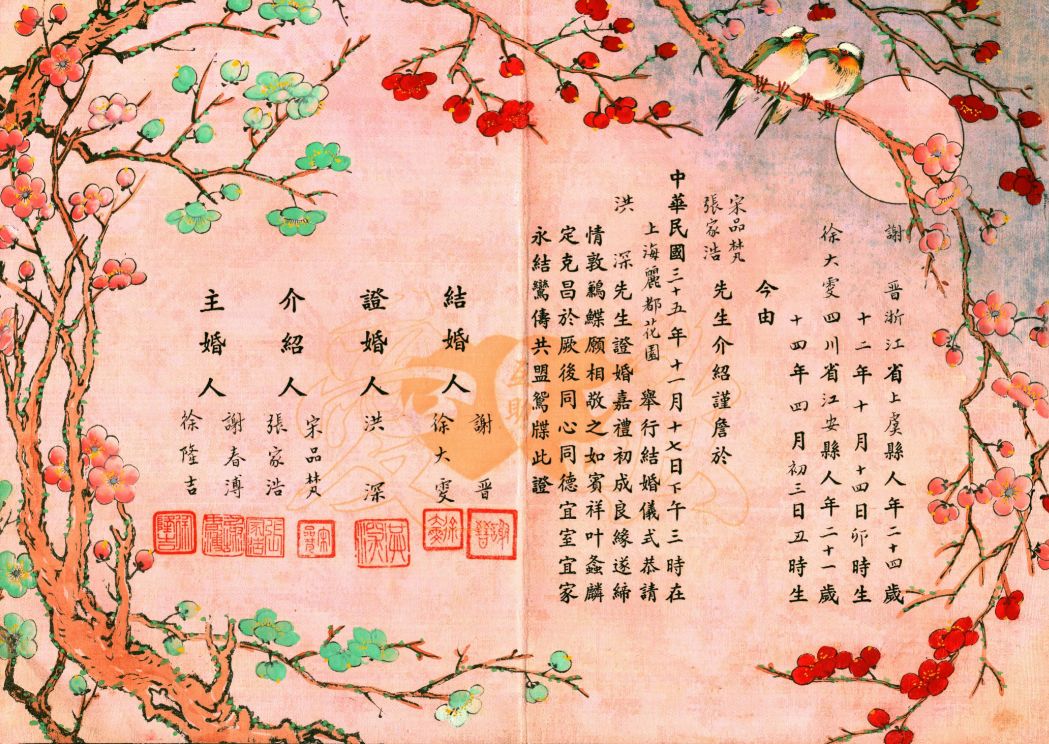 謝 晉浙江省上虞縣人年二十四歲
十二年十月十四日卯時生
徐大雯四川省江安縣人年二十一歲
十四年四月初三日丑時生
今由
宋品梵
張家浩
先生介紹謹詹於
中華民國三十五年十一月十七日下午三時在
上海麗都花園 舉行結婚儀式恭請
洪 深先生證婚嘉禮初成良緣遂締
情敦鶼鰈願相敬之如賓祥叶螽麟
定克昌於厥後同心同德宜室宜家
永結鸞儔共盟鴛牒此證
結婚人
謝 晉
徐大雯
證婚人
洪 深
介紹人
宋品梵
張家浩
主婚人
謝春溥
徐隆吉